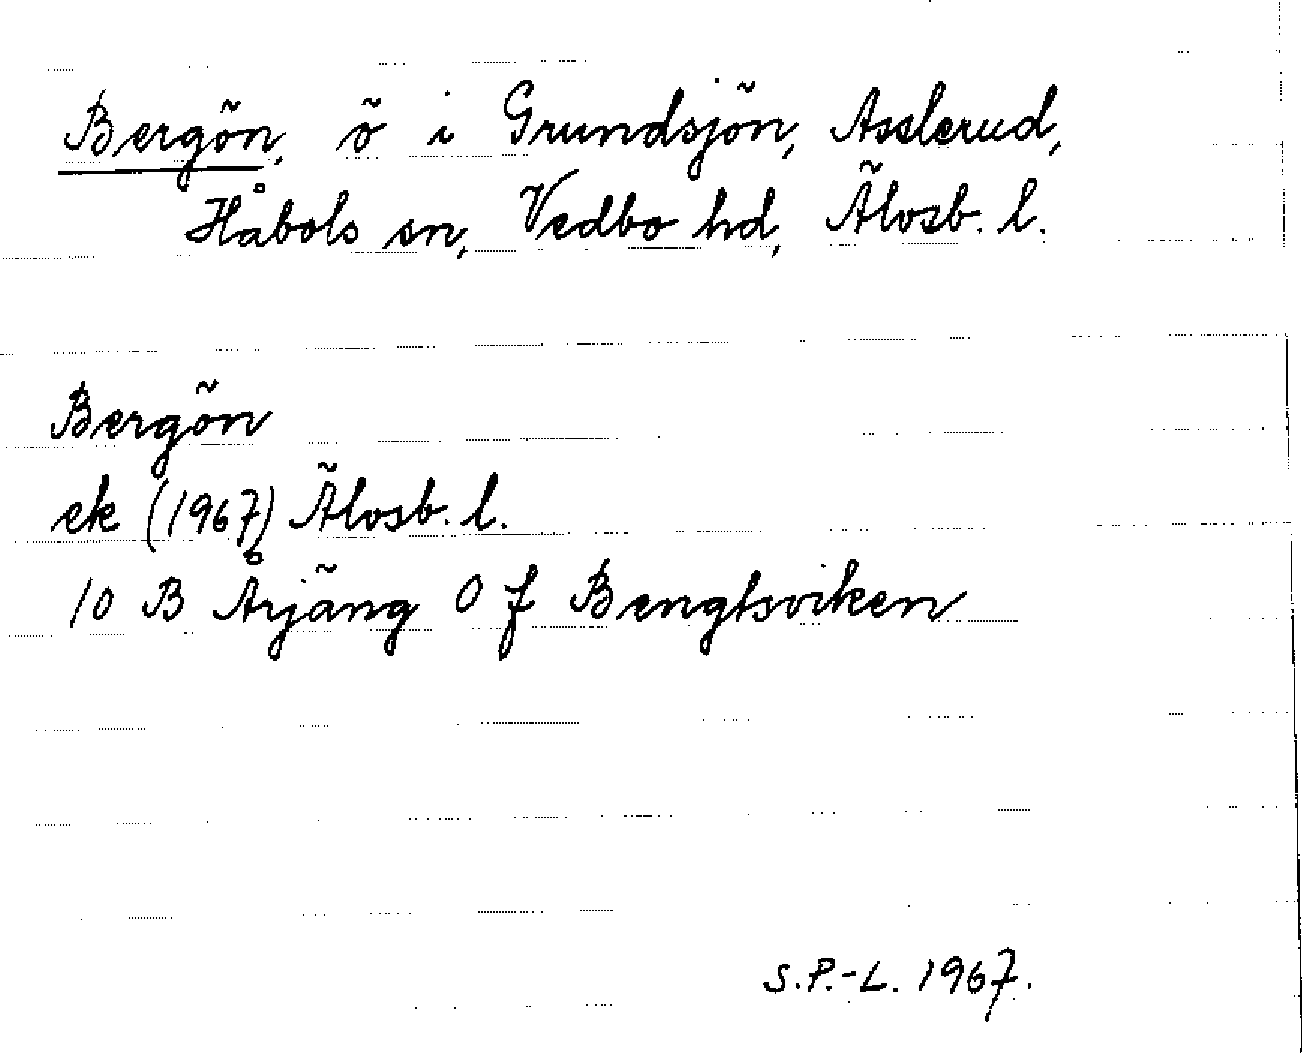 Bergön, ö i Grundsjön, Asslerud,
Håbols sn, Vedbo hd, Älvsb. l.
Bergön
ek (1967) Älvsb. l.
10 B Årjäng 0 f Bengtsviken
S.P.-L. 1967.